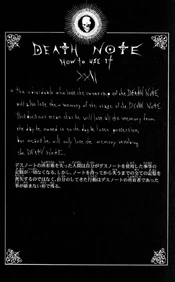 DEATH NOTE
HOW to USE it
XXVI
The individuals who lose the ownership of the DEATH NOTE
will also lose the memory of the usage of the DEATH NOTE.
This does not mean that he will lose all the memory from
the day he owned it to the day he loses possession,
but means he will only lose the memory involving
the DEATH NOTE.
デスノートの所有権を失った人間は自分がデスノートを使用した事等の
記憶が一切なくなる。しかし、ノートを持ってから失うまでの全ての記憶を
喪失するのではなく、自分のしてきた行動はデスノートの所有者であった
事が絡まない形で残る。